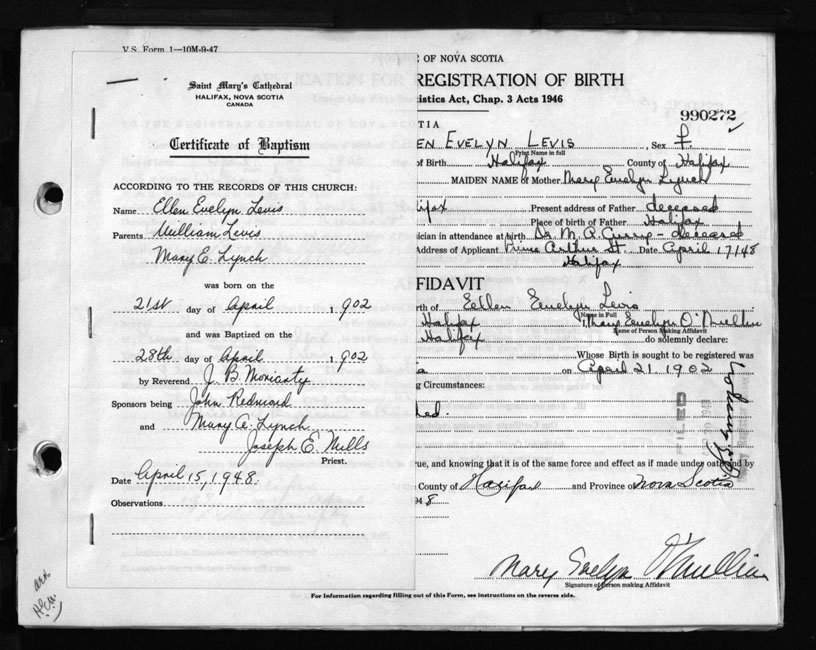 V.S. Form 1—10M-9-47
Saint Mary's Cathedral
HALIFAX, NOVA SCOTIA
CANADA
Certificate of Baptism
ACCORDING TO THE RECORDS OF THIS CHURCH:
Name Ellen Evelyn Levis
Parents William Levis
Mary E. Lynch
was born on the
21st day of April 1902
and was Baptized on the
28th day of April 1902
by Reverend J. B. Moriarty
Sponsors being John Redmond
and Mary A. Lynch
Joseph E. Mills
Priest.
Date April 15, 1948.
Observations
OF NOVA SCOTIA
REGISTRATION OF BIRTH
istics Act, Chap. 3 Acts 1946
990272
TIA
EN EVELYN LEVIS, Sex F.
Print Name in full
of Birth Halifax County of Halifax
MAIDEN NAME of Mother Mary Evelyn Lynch
ifax Present address of Father deceased
Place of birth of Father Halifax
sician in attendance at birth Dr. M. A. Curry - deceased
Address of Applicant Prince Arthur St. Date April 17/48
Halifax
FFIDAVIT
rth of Ellen Evelyn Levis
Name in Full
Halifax I, Mary Evelyn O'Mullin
Name of Person Making Affidavit
Halifax do solemnly declare:
Whose Birth is sought to be registered was
a on April 21 1902
ng Circumstances:
ded.
FILED
rue, and knowing that it is of the same force and effect as if made under oath and by
County of Halifax and Province of Nova Scotia
48
Mary Evelyn O'Mullin
Signature of Person making Affidavit
For Information regarding filling out of this Form, see instructions on the reverse side.